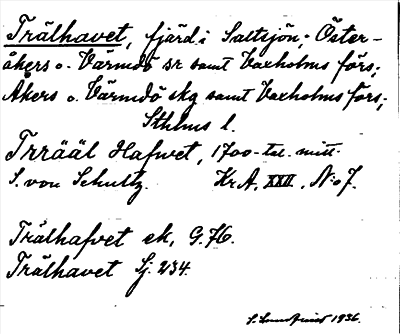 Trälhavet, fjärd i Saltsjön; Öster-
åkers o. Värmdö sr samt Vaxholms förs;
Åkers o. Värmdö skg samt Vaxholms förs;
Sthlms l.
Trrääl Hafwet, 1700-tal. mitt.
S. von Schultz. Kr.A. XXII, N:o 7.
Trälhafvet ek, G.76.
Trälhavet Sj. 234.
S. 1936.